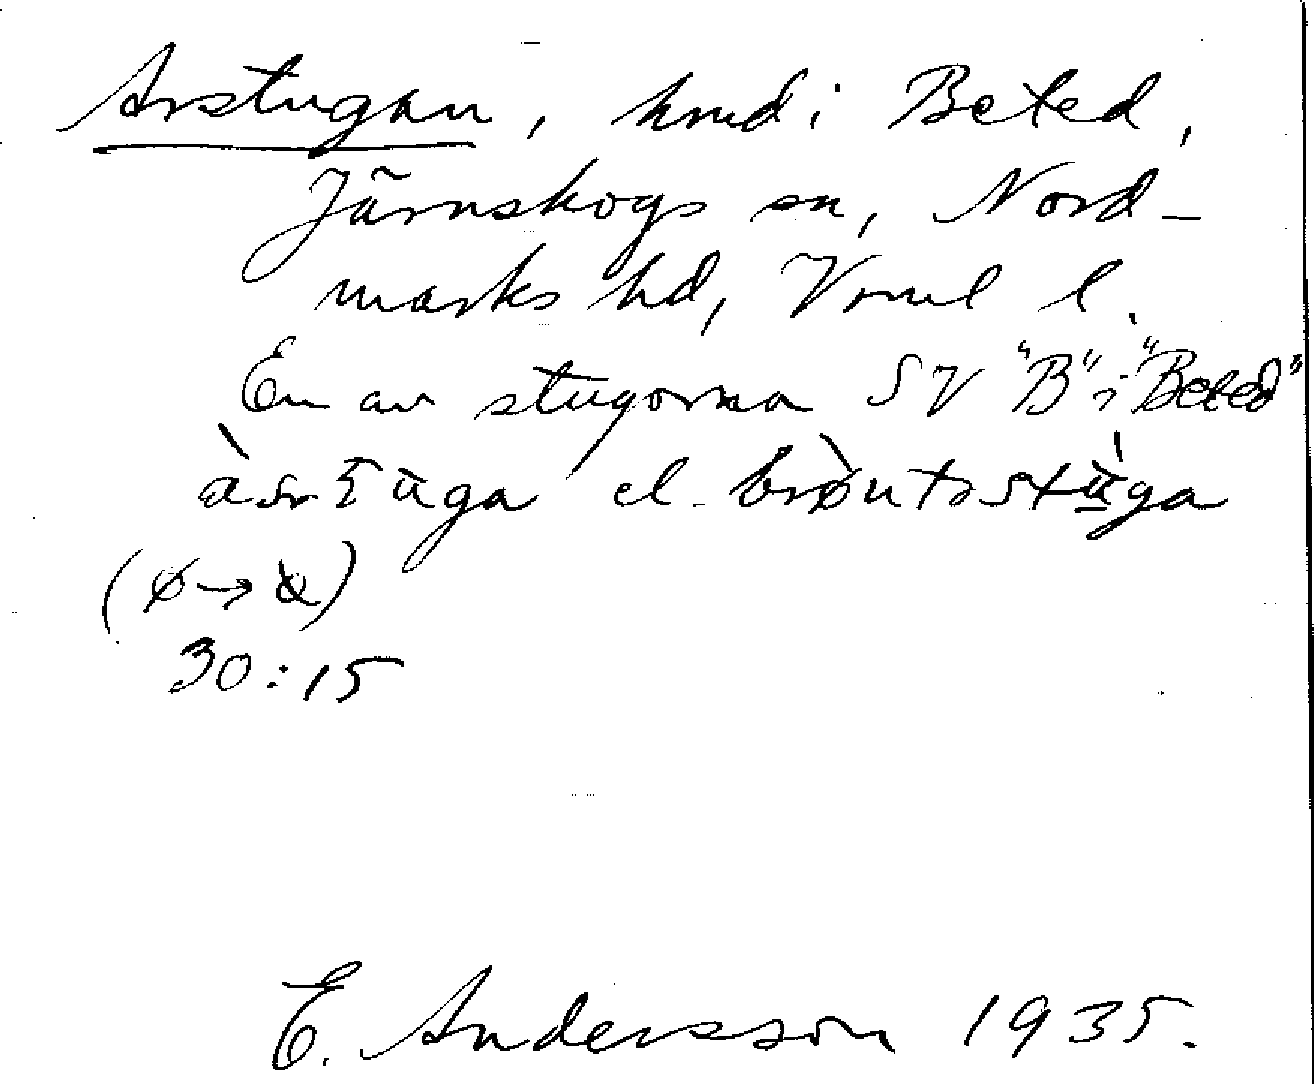 Arstugan, hmd i Beted,
Järnskogs sn, Nord-
marks hd, Vrml l.
En av stugorna SV "B" i "Beted"
el.
(ø→
30:15
E. Andersson 1935.